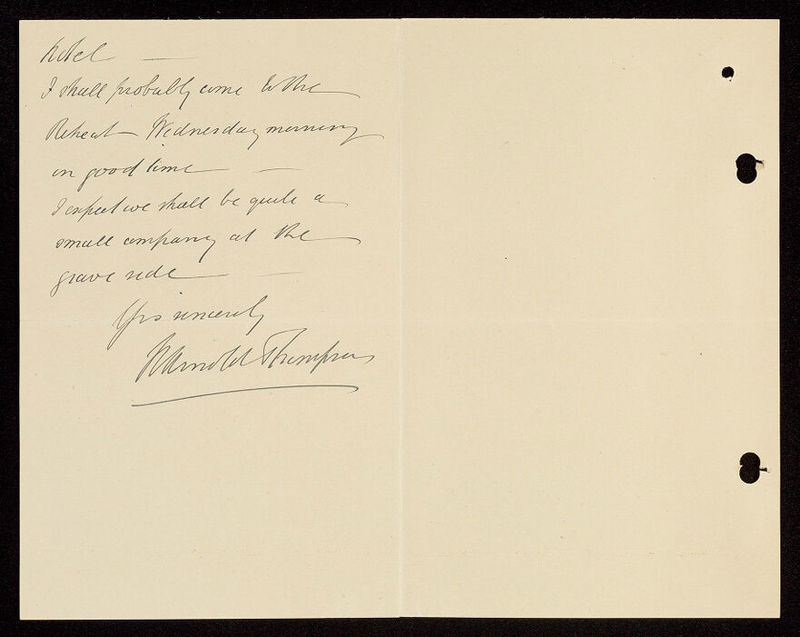 Hotel —
I shall probably come to the
Retreat – Wednesday morning
in good time —
I expect we shall be quite a
small company at the
grave side —
Yrs sincerely
Arnold Thompson